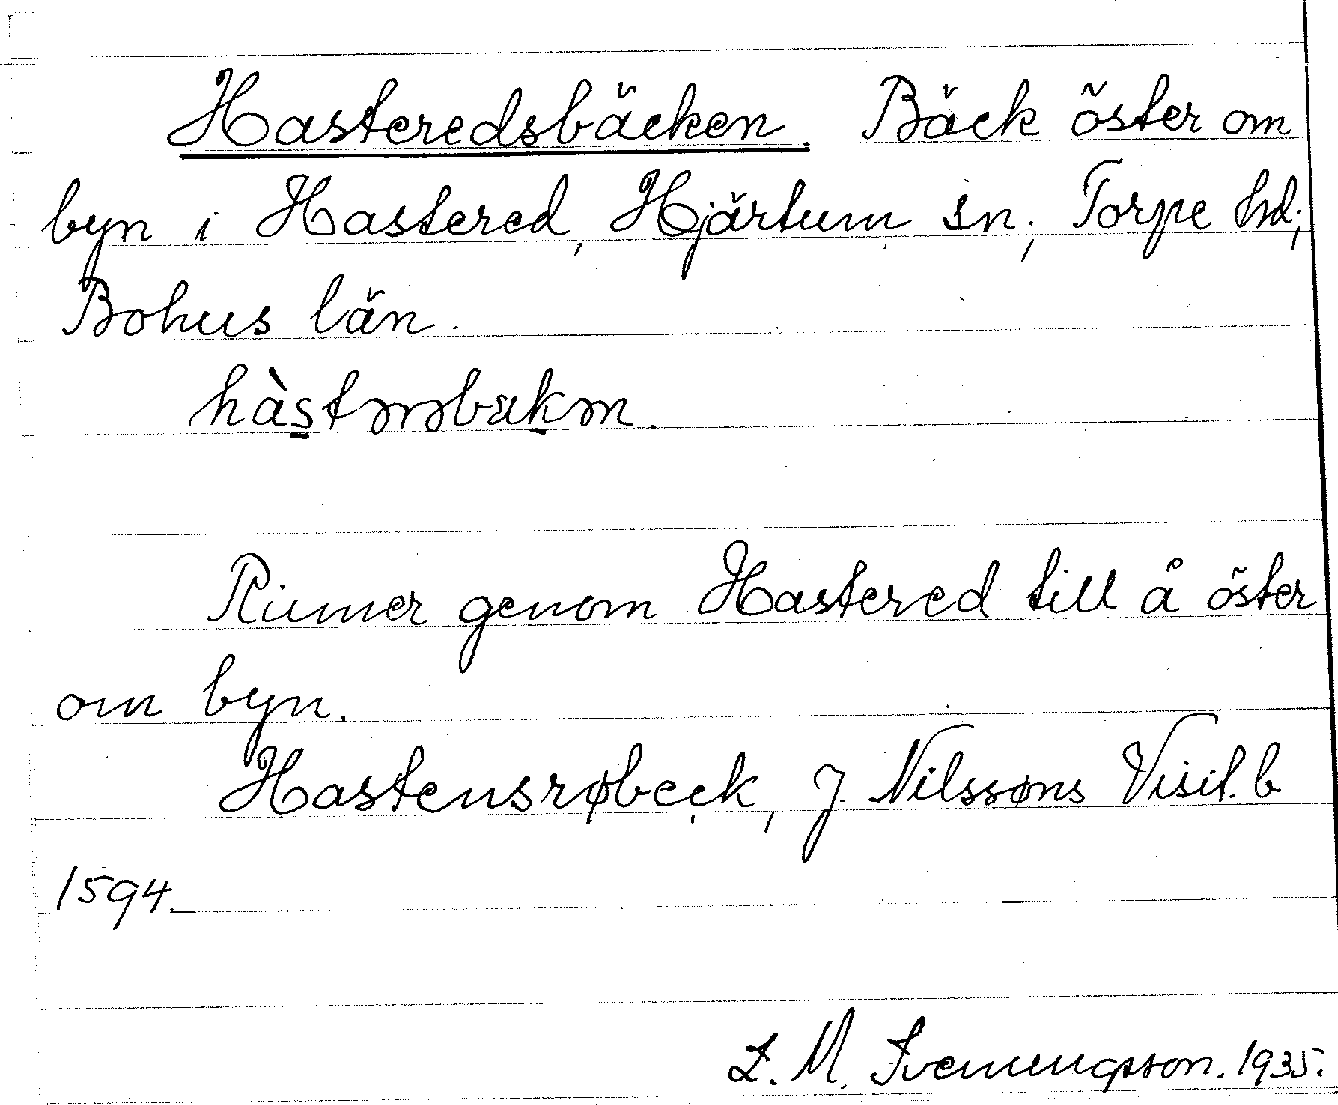 Hasteredsbäcken. Bäck öster om
byn i Hastered, Hjärtum sn; Torpe hd;
Bohus län.
Rinner genom Hastered till å öster
om byn.
Hastensrøbeck, J. Nilssøns Visit. b
1594.
L. M. Svenungsson. 1935.